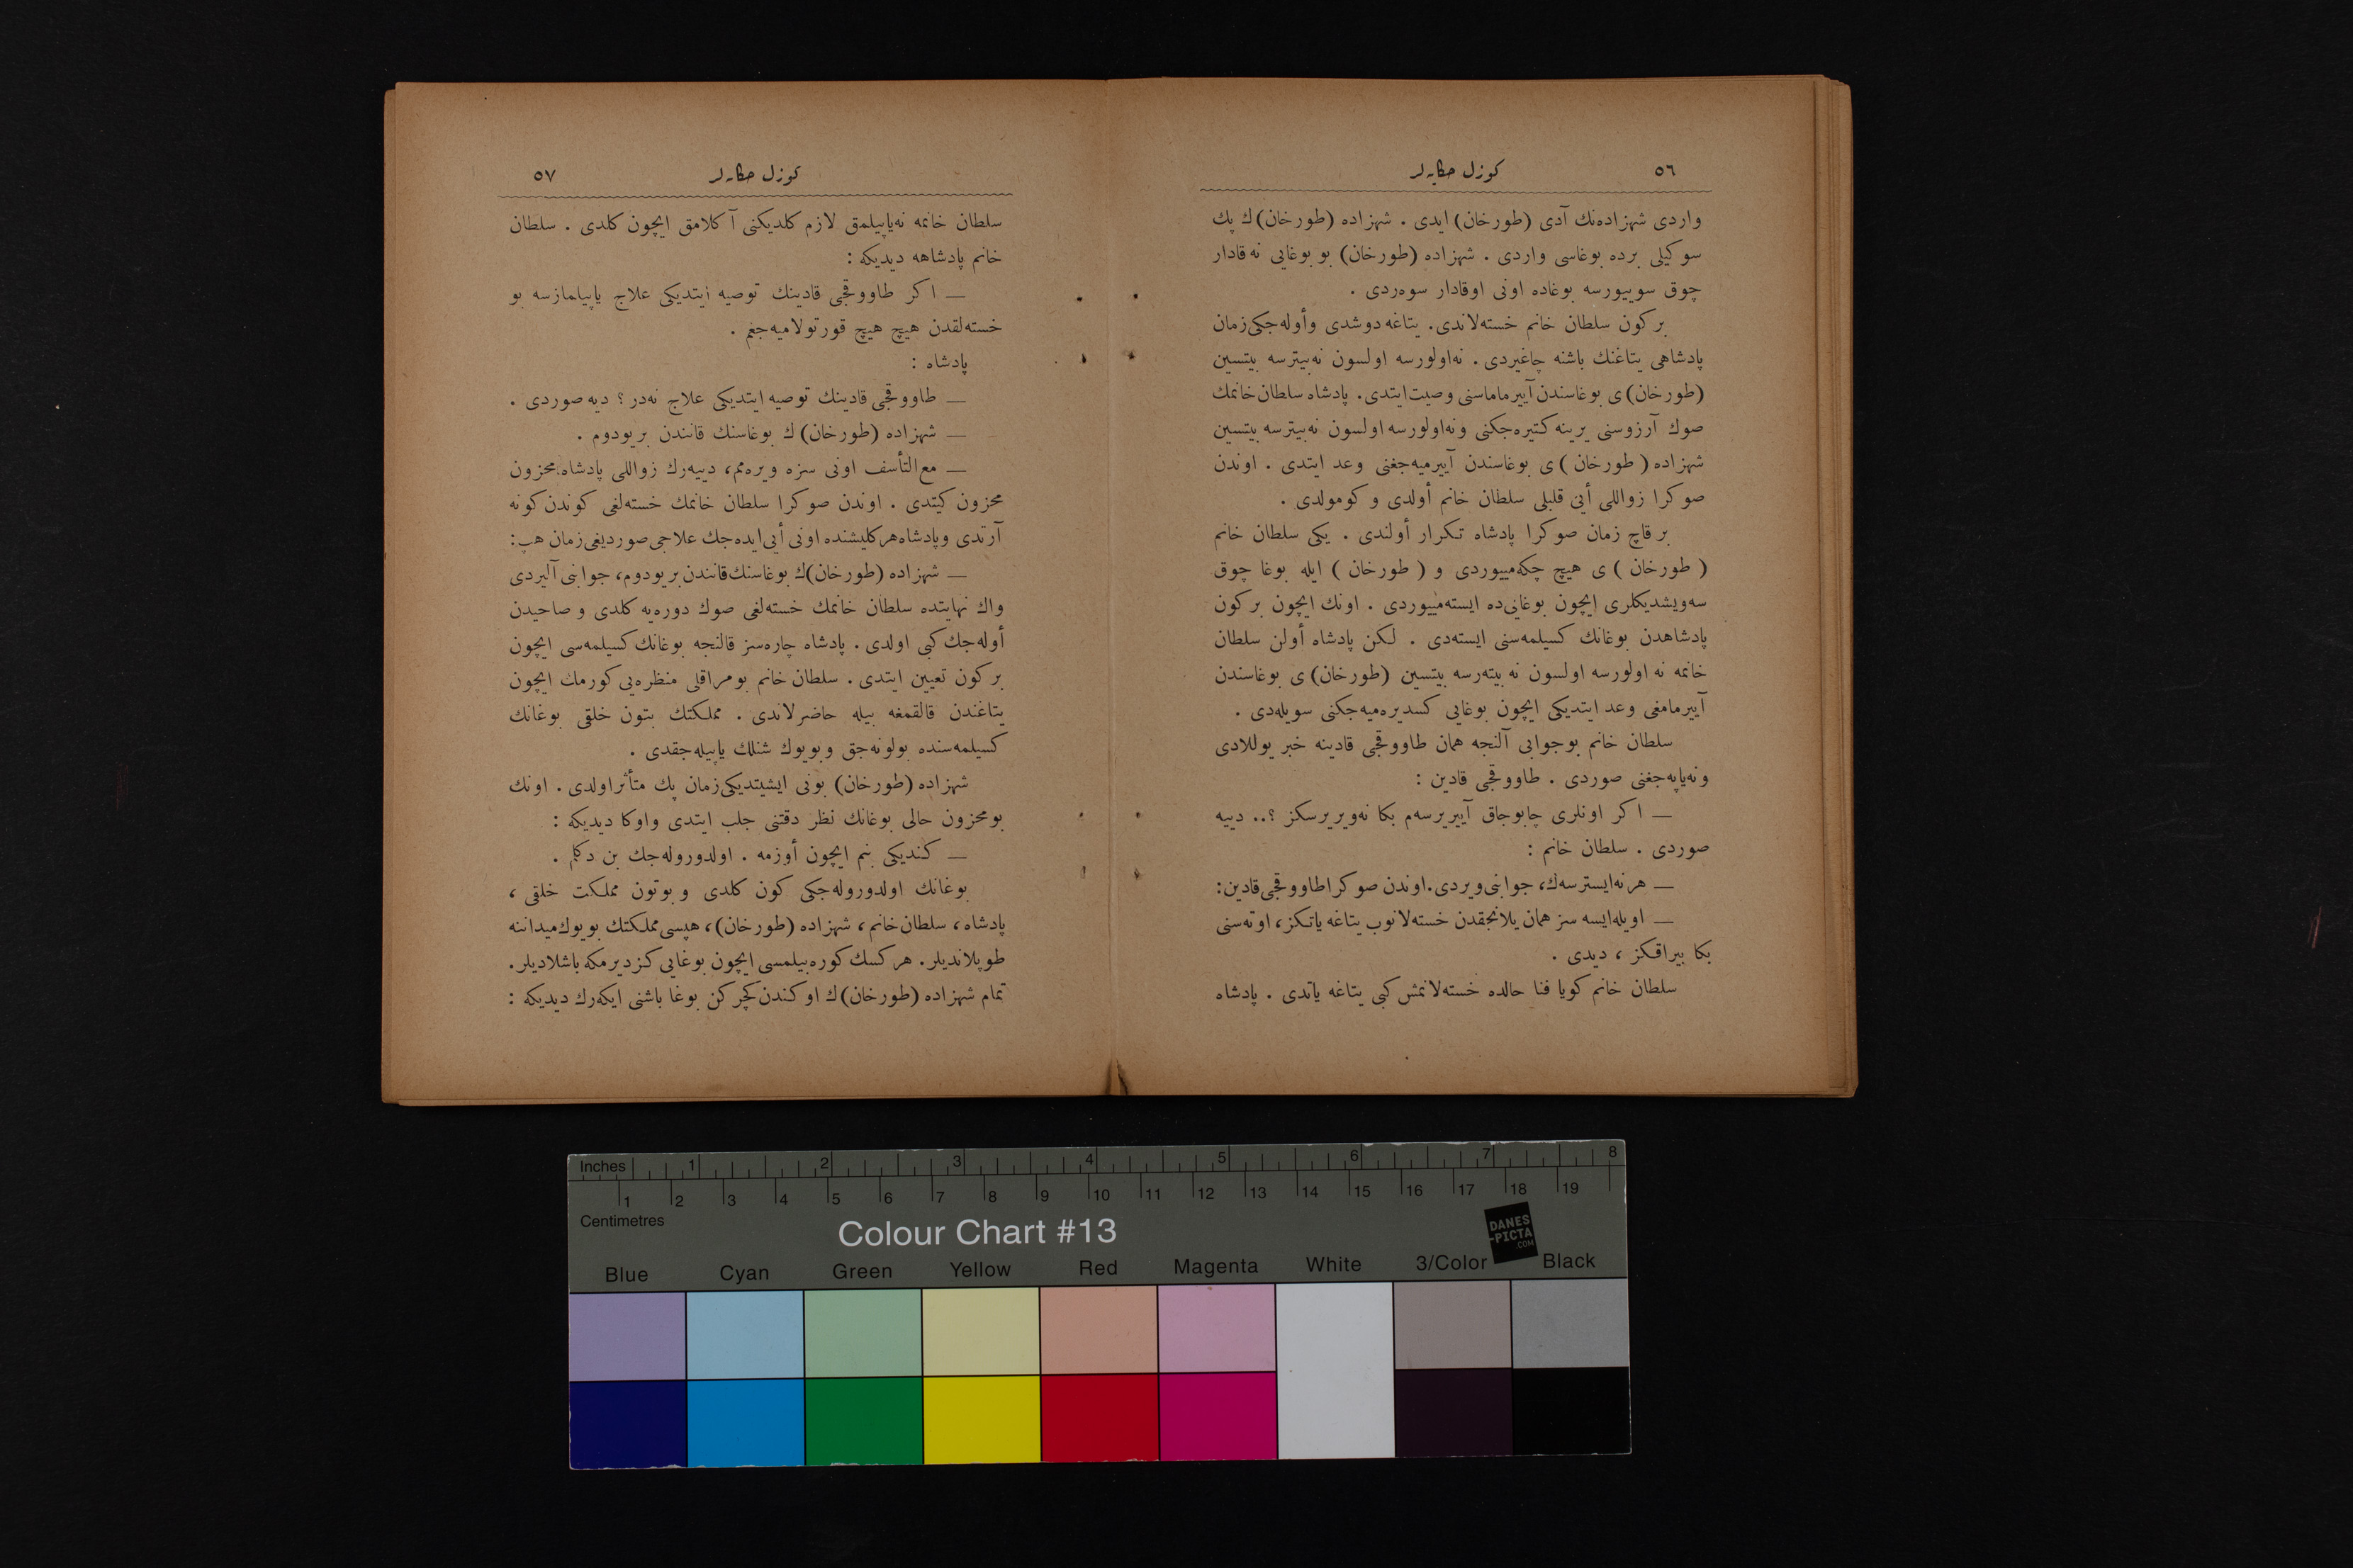 ٥٦
كوزل حكايه‌لر
واردی شهزاده‌نك آدی (طورخان) ایدی . شهزاده (طورخان)ك پك
سوكیلی برده بوغاسی واردی . شهزاده (طورخان) بو بوغایی نه قادار
چوق سوییورسه بوغاده اونی اوقادار سوه‌ردی .
بر كون سلطان خانم خسته‌لاندی. یتاغه دوشدی وأوله‌جكی زمان
پادشاهی یتاغنك باشنه چاغیردی . نه‌اولورسه اولسون نه‌بیترسه بیتسین
(طورخان)ی بوغاسندن آییرماماسنی وصیت‌ایتدی. پادشاه سلطان خانمك
صوك آرزوسنی یرینه كتیره‌جكنی ونه‌اولورسه اولسون نه‌بیترسه بیتسین
شهزاده (طورخان)ی بوغاسندن آییرمیه‌جغنی وعد ایتدی . اوندن
صوكرا زواللی أیی قلبلی سلطان خانم أولدی و كومولدی .
بر قاچ زمان صوكرا پادشاه تكرار أولندی . یكی سلطان خانم
(طورخان)ی هیچ چكه‌مییوردی و (طورخان) ایله بوغا چوق
سه‌ویشدیكلری ایچون بوغایی‌ده ایسته‌مییوردی . اونك ایچون بر كون
پادشاهدن بوغانك كسیلمه‌سنی ایسته‌دی . لكن پادشاه أولن سلطان
خانمه نه اولورسه اولسون نه بیته‌رسه بیتسین (طورخان)ی بوغاسندن
آییرمامغی وعد ایتدیكی ایچون بوغایی كسدیره‌میه‌جكنی سویله‌دی .
سلطان خانم بوجوابی آلنجه همان طاووقجی قادینه خبر یوللادی
ونه‌یاپه‌جغنی صوردی . طاووقجی قادین :
— اكر اونلری چابوجاق آییریرسه‌م بكا نه‌ویریرسكز ؟.. دییه
صوردی . سلطان خانم :
— هرنه‌ایسترسه‌ك، جوابنی‌ویردی.اوندن صوكراطاووقجی‌قادین:
— اویله‌ایسه سز همان یلانجقدن خسته‌لانوب یتاغه یاتكز، اوته‌سنی
بكا بیراقكز ، دیدی .
سلطان خانم كویا فنا حالده خسته‌لانمش كبی یتاغه یاتدی . پادشاه
٥٧
كوزل حكايه‌لر
سلطان خانمه نه‌یاپیلمق لازم كلدیكنی آكلامق ایچون كلدی . سلطان
خانم پادشاهه دیدیكه :
— اكر طاووقجی قادینك توصیه ایتدیكی علاج یاپیلمازسه بو
خسته‌لقدن هیچ هیچ قورتولامیه‌جغم .
پادشاه :
— طاووقجی قادینك توصیه ایتدیكی علاج نه‌در ؟ دیه صوردی .
— شهزاده (طورخان)ك بوغاسنك قانندن بریودوم .
— مع‌التأسف اونی سزه ویره‌مم، دییه‌رك زواللی پادشاه‌محزون
محزون كیتدی . اوندن صوكرا سلطان خانمك خسته‌لغی كوندن كونه
آرتدی وپادشاه هركلیشنده اونی أیی‌ایده‌جك علاجی‌صوردیغی‌زمان هپ:
— شهزاده (طورخان)ك بوغاسنك‌قانندن‌بریودوم، جوابنی آلیردی
واك نهایتده سلطان خانمك خسته‌لغی صوك دوره‌یه كلدی و صاحیدن
أوله‌جك كبی اولدی . پادشاه چاره‌سز قالنجه بوغانك كسیلمه‌سی ایچون
بر كون تعیین ایتدی . سلطان خانم بومراقلی منظره‌یی كورمك ایچون
یتاغندن قالقمغه بیله حاضرلاندی . مملكتك بتون خلقی بوغانك
كسیلمه‌سنده بولونه‌جق وبویوك شنلك یاپیله‌جقدی .
شهزاده (طورخان) بونی ایشیتدیكی‌زمان پك متأثراولدی . اونك
بومحزون حالی بوغانك نظر دقتنی جلب ایتدی واوكا دیدیكه :
— كندیكی بنم ایچون أوزمه . اولدوروله‌جك بن دكلم .
بوغانك اولدوروله‌جكی كون كلدی و بوتون مملكت خلقی ،
پادشاه، سلطان خانم، شهزاده (طورخان)، هپسی‌مملكتك بویوك‌میداننه
طوپلاندیلر. هركسك كوره‌بیلمسی ایچون بوغایی كزدیرمكه باشلادیلر.
تمام شهزاده (طورخان)ك اوكندن كچركن بوغا باشنی ایكه‌رك دیدیكه :
Inches 1 2 3 4 5 6 7 8
1 2 3 4 5 6 7 8 9 10 11 12 13 14 15 16 17 18 19
Centimetres
Colour Chart #13
DANES
-PICTA
.COM
Blue Cyan Green Yellow Red Magenta White 3/Color Black